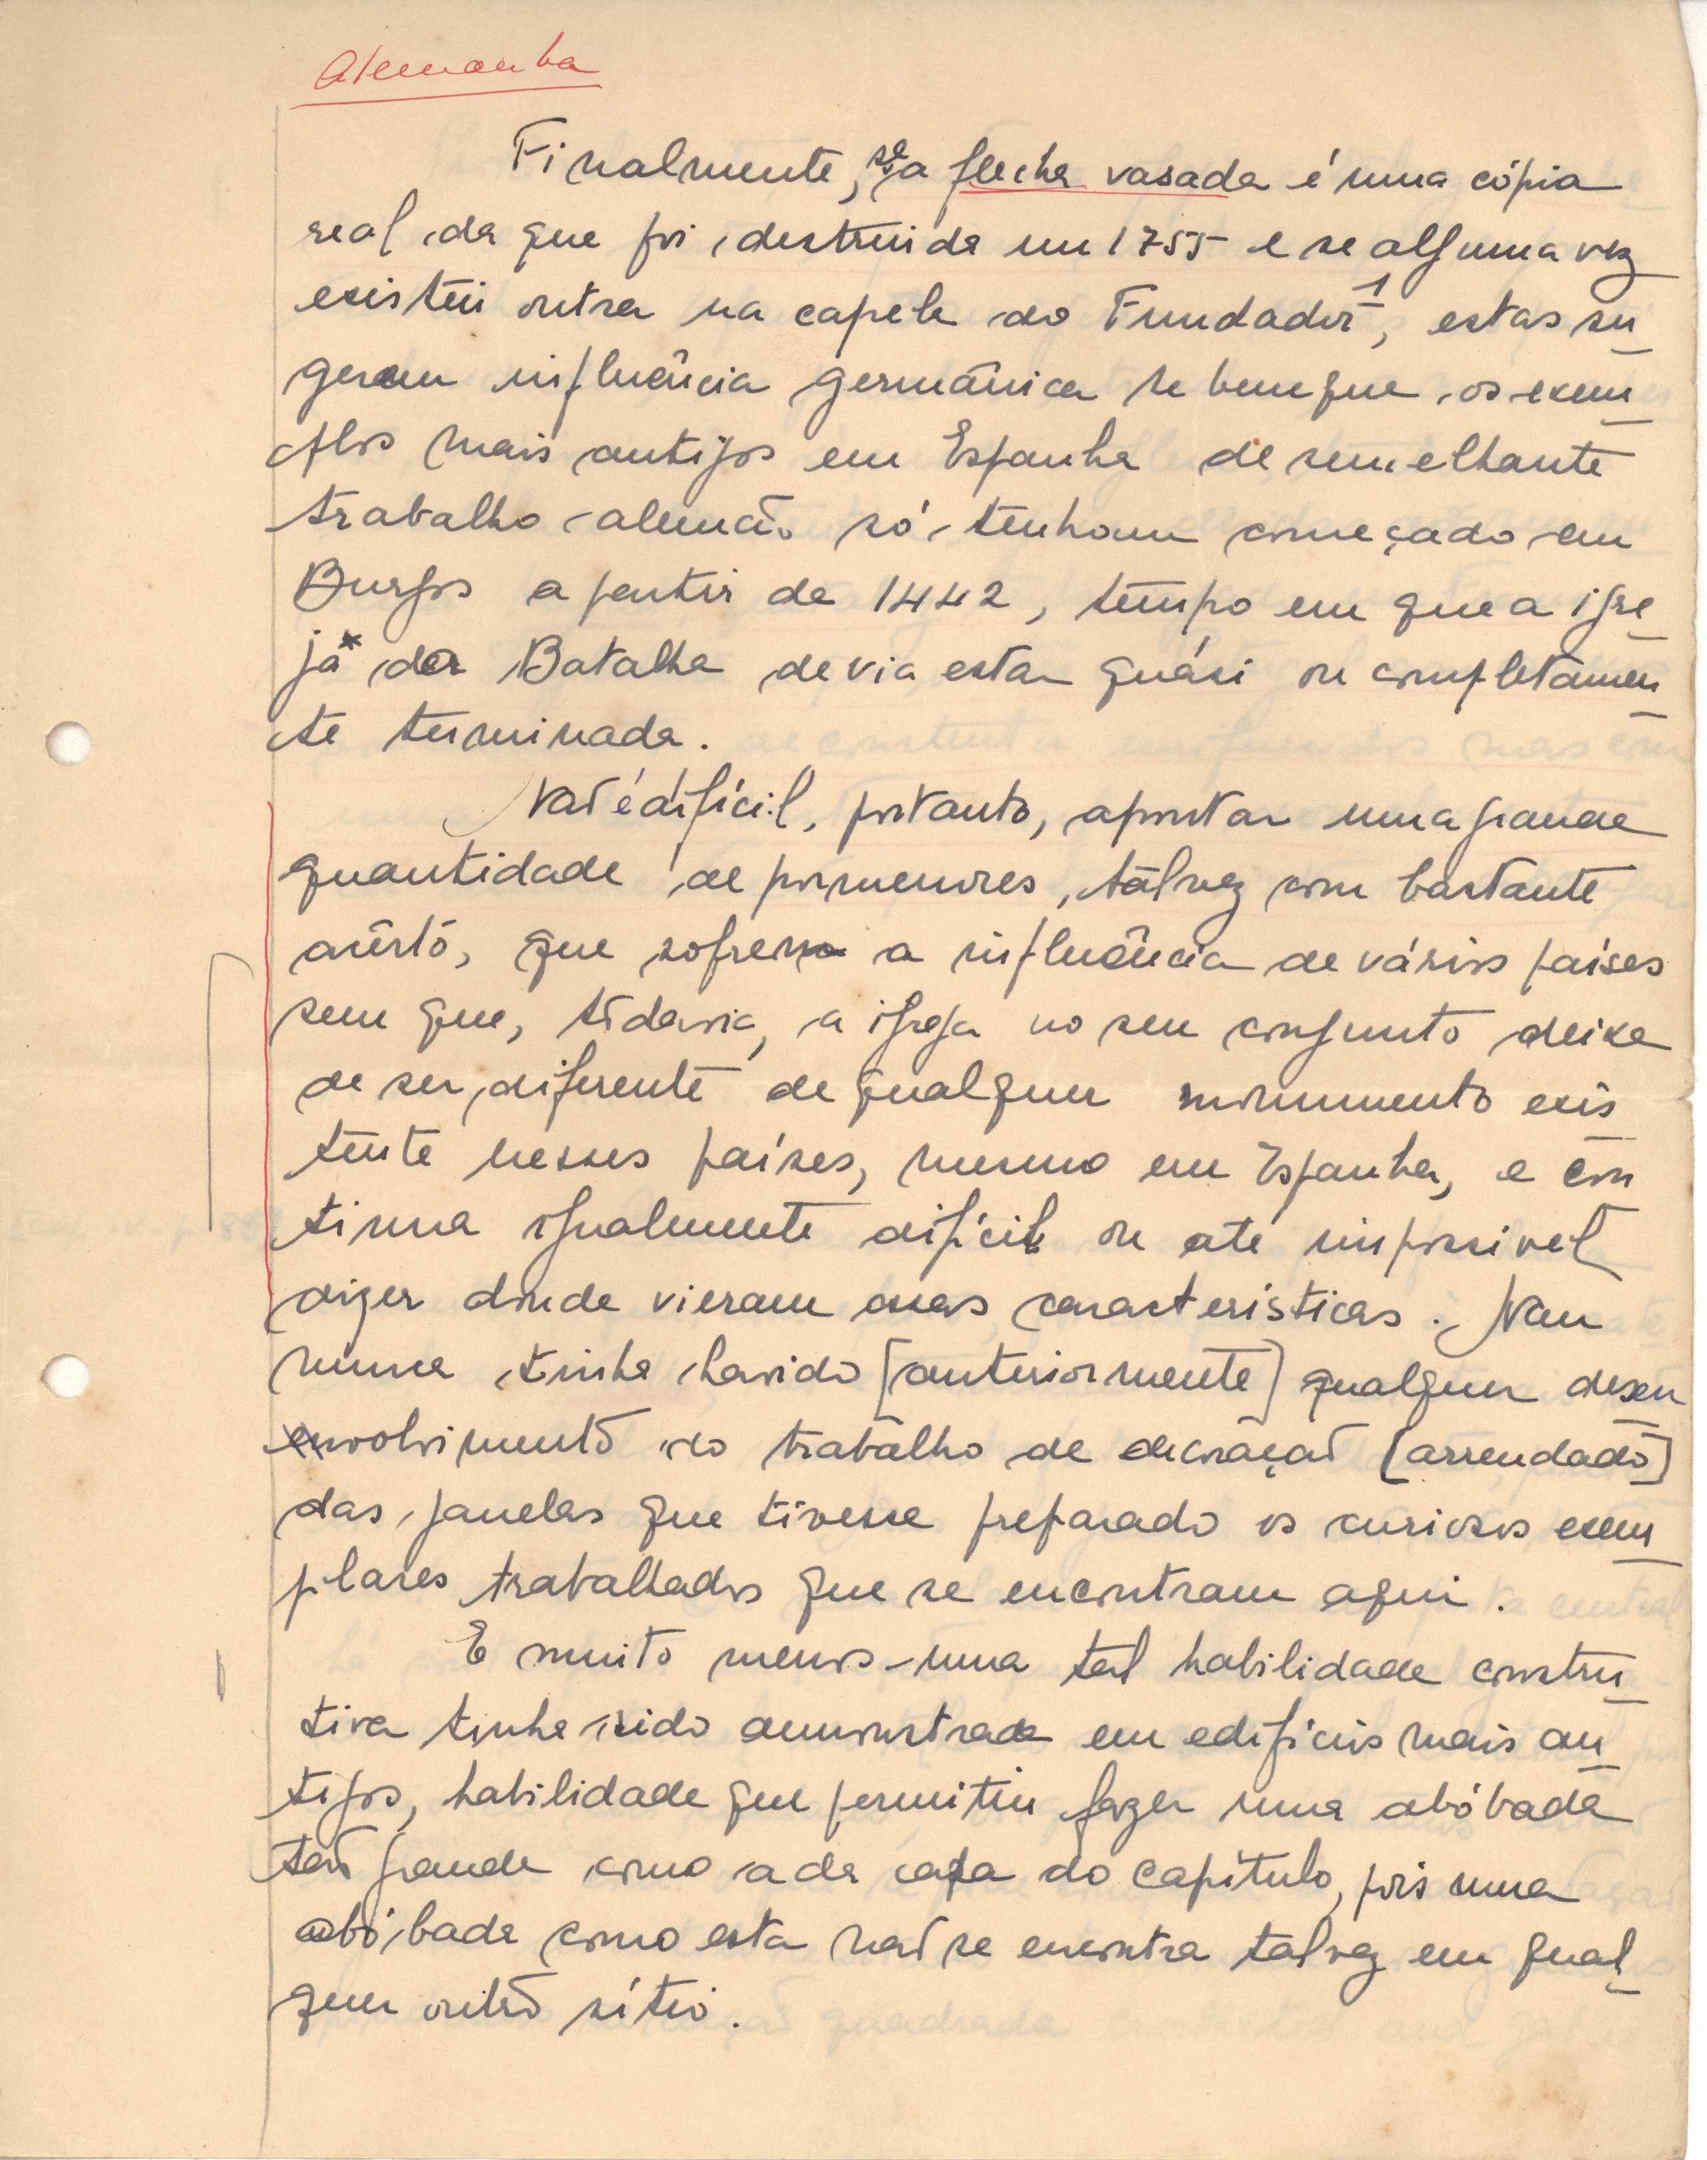 Alemanha
Finalmente, se a flecha vasada é uma cópia
real da que foi destruida em 1755 e se alguma vez
existiu outra na capela do Fundador 1, estas su
gerem influência germânica se bem que os exem
plos mais antigos em Espanha de semelhante
trabalho alemão só tenham começado em
Burgos a partir de 1442, tempo em que a igre
ja* da Batalha devia estar quási ou completamen
te terminada.
Não é difícil, portanto, apontar uma grande
quantidade de pormenores, talvez com bastante
acêrto, que sofrem a influência de vários países
sem que, todavia, a igreja no seu conjunto deixe
de ser diferente de qualquer monumento exis
tente nesses países, mesmo em Espanha, e con
tinua igualmente difícil ou até impossivel
dizer donde vieram essas caracteristicas. Nen
huma tinha havido [anteriormente] qualquer desen
volvimento no trabalho de decoração [arrendado]
das janelas que tivesse preparado os curiosos exem
plares trabalhados que se encontram aqui.
E muito menos uma tal habilidade constru
tiva tinha sido demonstrada em edifícios mais an
tigos, habilidade que permitiu fazer uma abóbada
tão grande como a da casa do capítulo, pois uma
abóbada como esta não se encontra talvez em qual
quer outro sítio.